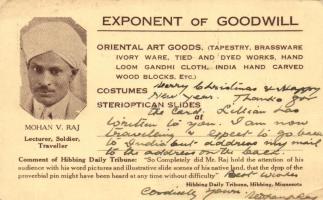 EXPONENT OF GOODWILL
ORIENTAL ART GOODS, (TAPESTRY, BRASSWARE
IVORY WARE, TIED AND DYED WORKS, HAND
LOOM GANDHI CLOTH, INDIA HAND CARVED
WOOD BLOCKS, ETC.)
COSTUMES
STERIOPTICAN SLIDES
Merry Christmas & Happy
New Year. Thanks for
the card. Lillian has
written to you. I am now
travelling & expect to go back
to India but address my mail
to the address on the back.
MOHAN V. RAJ
Lecturer, Soldier,
Traveller
Comment of Hibbing Daily Tribune: "So Completely did Mr. Raj hold the attention of his
audience with his word pictures and illustrative slide scenes of his native land, that the drop of the
proverbial pin might have been heard at any time without difficulty"
Best wishes
Hibbing Daily Tribune, Hibbing, Minnesota
Cordially yours